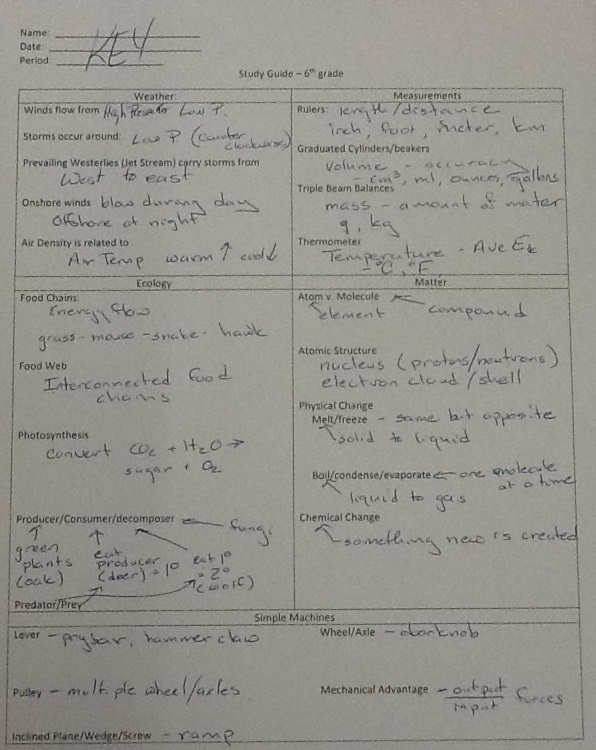 Name:
Date: KEY
Period
Study Guide – 6th grade
Weather:
Winds flow from High Pres to Low P.
Storms occur around: Low P (counter
clockwise)
Prevailing Westerlies (Jet Stream) carry storms from
West to east
Onshore winds blow during day
Offshore at night
Air Density is related to
Air Temp warm ↑ cool ↓
Measurements
Rulers: length/distance
inch, foot, meter, km
Graduated Cylinders/beakers
Volume - accuracy
- cm³, ml, ounces, gallons
Triple Beam Balances
mass - amount of mater
g, kg
Thermometer
Temperature - Ave Ek
- °C, °F
Ecology
Food Chains:
Energy flow
grass - mouse - snake - hawk
Food Web
Interconnected food
chains
Photosynthesis
convert CO₂ + H₂O →
sugar + O₂
Producer/Consumer/decomposer ← fungi
green
plants
(oak)
eat
producer
(deer) = 1°
eat 1°
= 2°
Predator/Prey
Matter
Atom v. Molecule ← compound
element
Atomic Structure
nucleus (protons/neutrons)
electron cloud/shell
Physical Change
Melt/freeze - same but opposite
solid to liquid
Boil/condense/evaporate ← one molecule
at a time
liquid to gas
Chemical Change
something new is created
Simple Machines
Lever - prybar, hammer claw
Wheel/Axle - doorknob
Pulley - multiple wheel/axles
Mechanical Advantage - output forces
input
Inclined Plane/Wedge/Screw - ramp